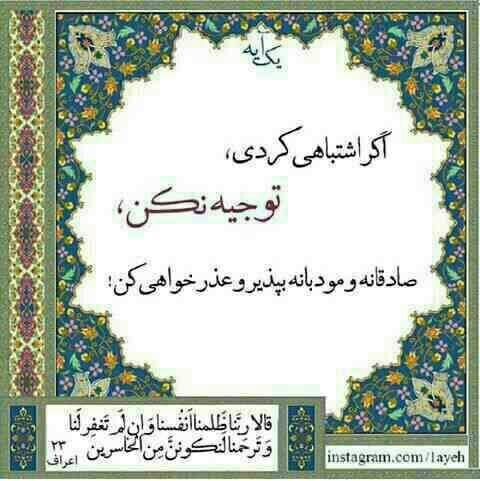 یک آیه
اگر اشتباهی کردی،
توجیه نکن،
صادقانه و مودبانه بپذیر و عذرخواهی کن!
قالا ربنا ظلمنا انفسنا و ان لم تغفر لنا
و ترحمنا لنکونن من الخاسرین
۲۳
اعراف
instagram.com/1ayeh